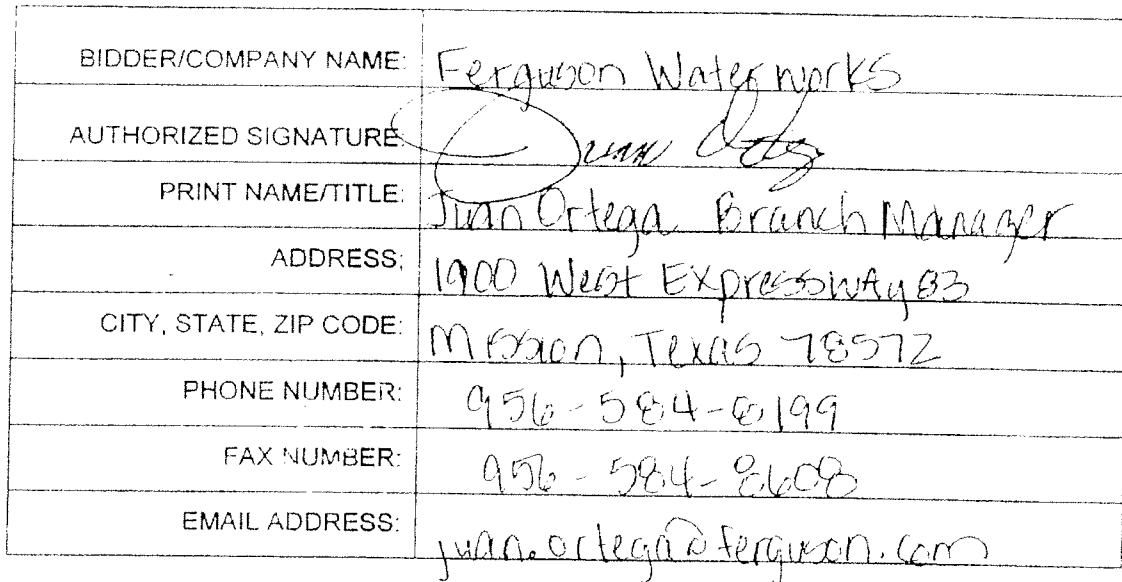 BIDDER/COMPANY NAME: Ferguson Waterworks
AUTHORIZED SIGNATURE: Juan Ortega
PRINT NAME/TITLE: Juan Ortega Branch Manager
ADDRESS: 1900 West Expressway 83
CITY, STATE, ZIP CODE: Mission, Texas 78572
PHONE NUMBER: 956-584-8199
FAX NUMBER: 956-584-8608
EMAIL ADDRESS: juan.ortega@ferguson.com